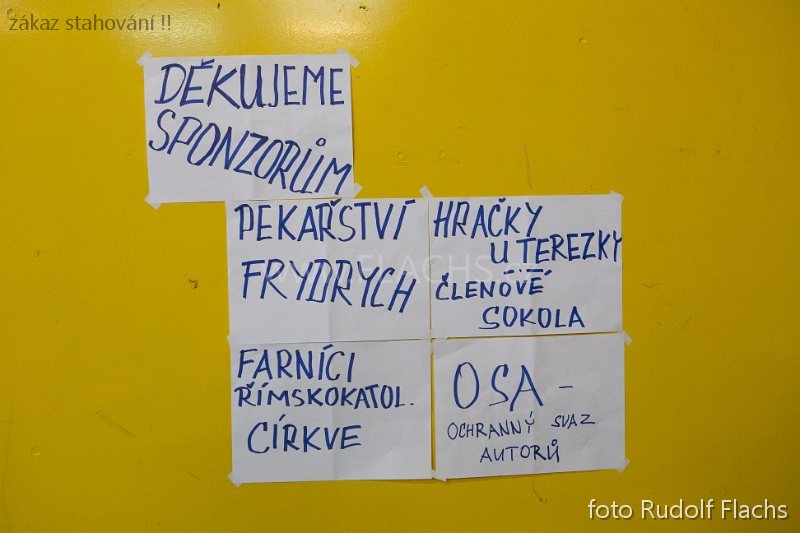 zákaz stahování !!
DĚKUJEME
SPONZORŮM
PEKAŘSTVÍ
FRYDRYCH
HRAČKY
U TEREZKY
ČLENOVÉ
SOKOLA
FARNÍCI
ŘÍMSKOKATOL.
CÍRKVE
OSA –
OCHRANNÝ SVAZ
AUTORŮ
foto Rudolf Flachs